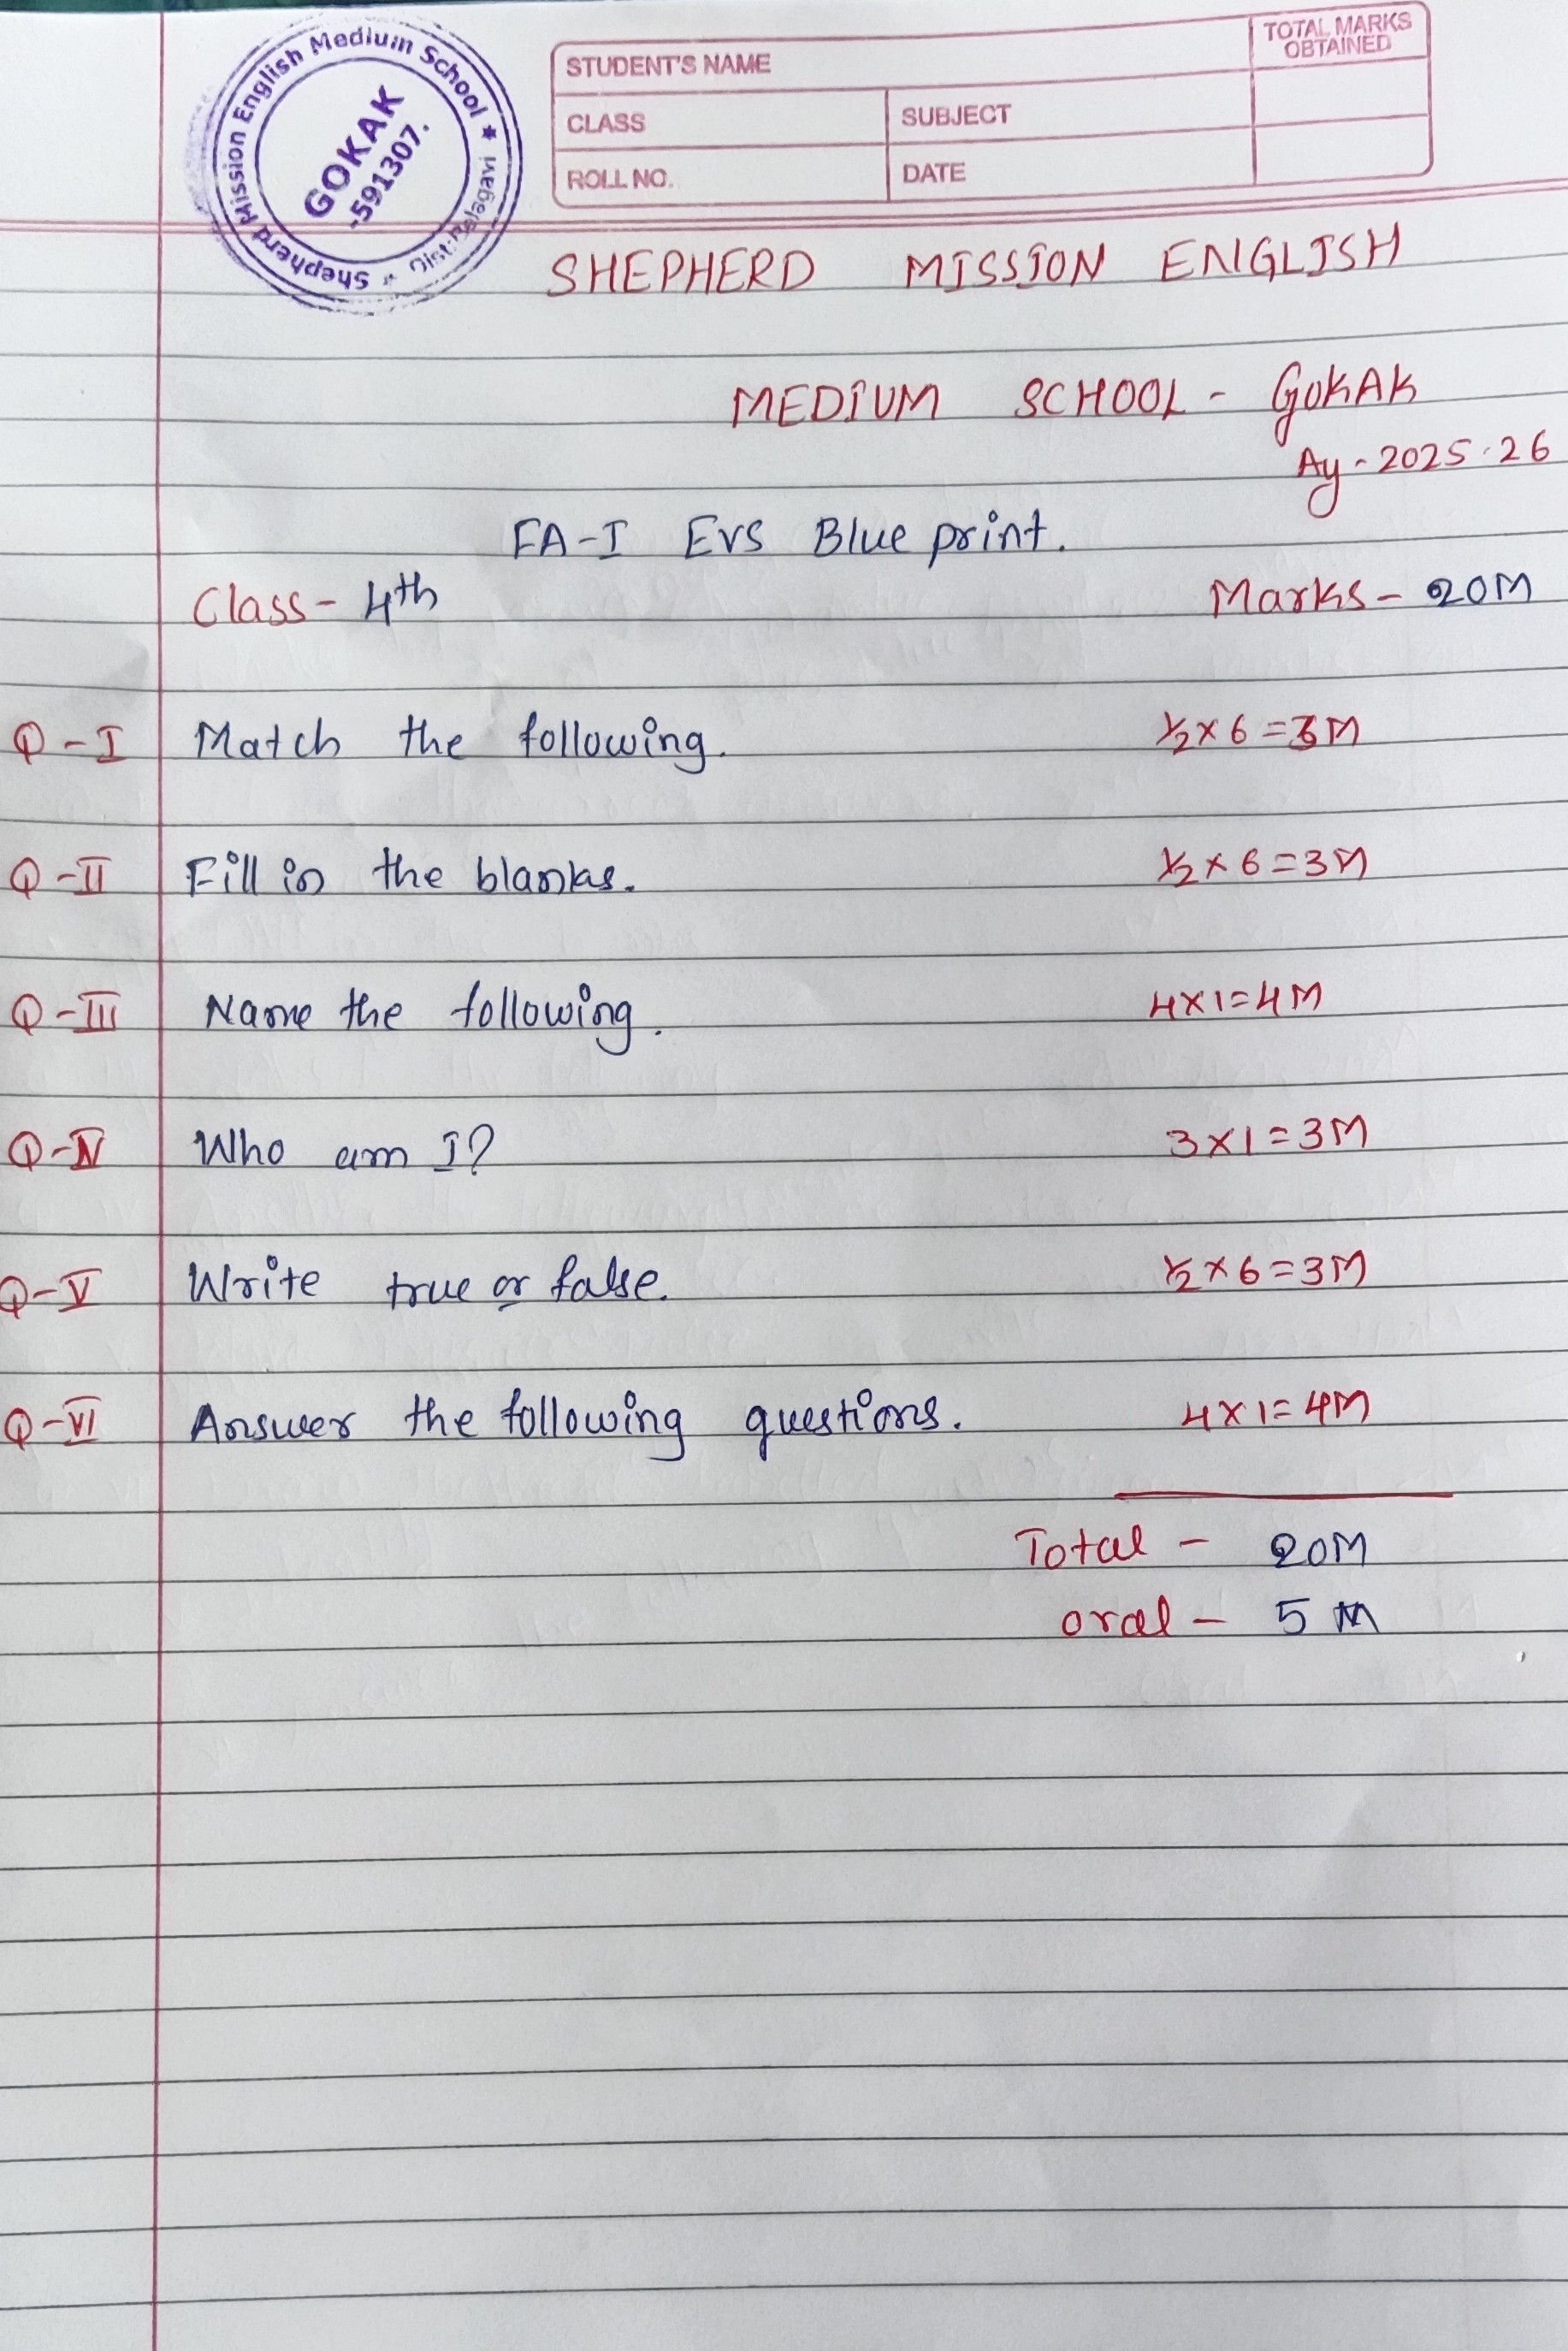 Shepherd Mission English Medium School * Dist: Belagavi *
GOKAK
-591307.
STUDENT'S NAME
TOTAL MARKS
OBTAINED
CLASS
SUBJECT
ROLL NO.
DATE
SHEPHERD MISSION ENGLISH
MEDIUM SCHOOL - GOKAK
Ay - 2025-26
FA-I EVS Blue print.
Class - 4th Marks - 20M
Q-I Match the following. 1/2 × 6 = 3M
Q-II Fill in the blanks. 1/2 × 6 = 3M
Q-III Name the following. 4×1=4M
Q-IV Who am I? 3×1=3M
Q-V Write true or false. 1/2 × 6 = 3M
Q-VI Answer the following questions. 4×1=4M
Total - 20M
oral - 5 M